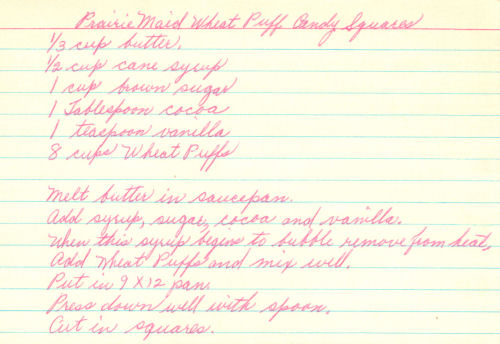 Prairie Maid Wheat Puff Candy Squares
1/3 cup butter.
1/2 cup cane syrup
1 cup brown sugar
1 Tablespoon cocoa
1 teaspoon vanilla
8 cups Wheat Puffs
Melt butter in saucepan.
Add syrup, sugar, cocoa and vanilla.
When this syrup begins to bubble remove from heat,
Add Wheat Puffs and mix well.
Put in 9 X 12 pan.
Press down well with spoon.
Cut in squares.